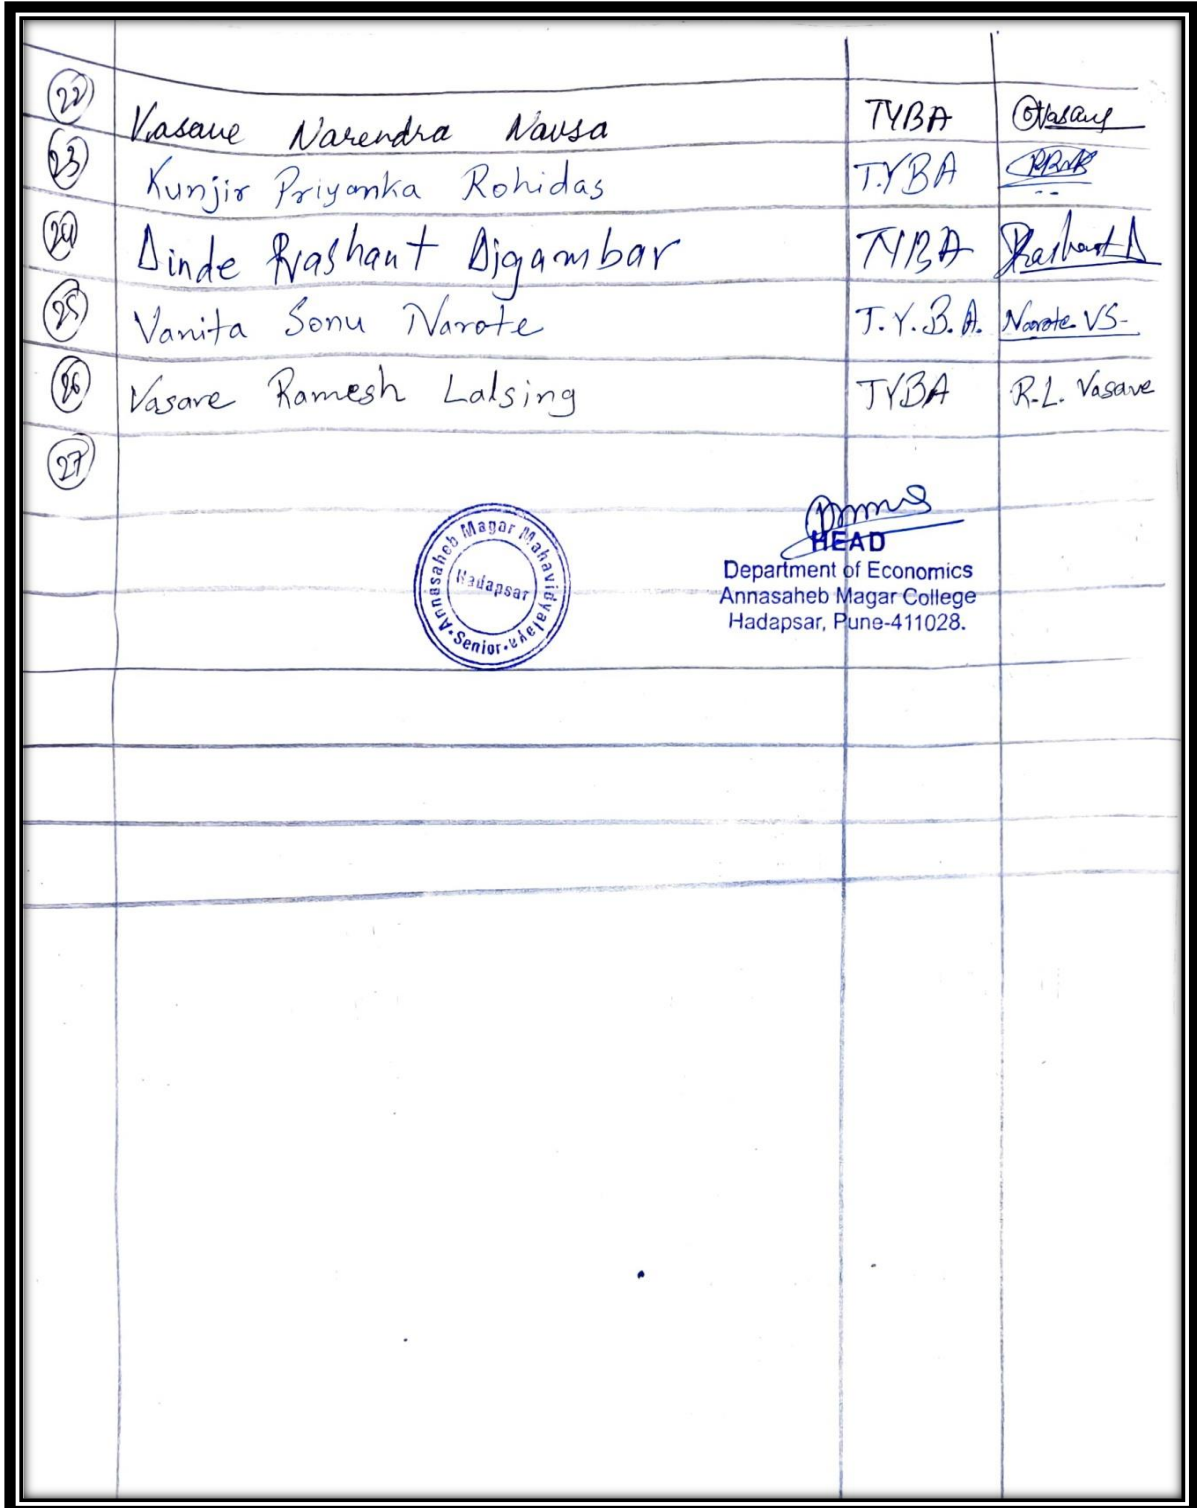 22 Vasave Narendra Navsa TYBA Vasave
23 Kunjir Priyanka Rohidas T.YBA
24 Dinde Prashant Digambar TYBA Prashant D
25 Vanita Sonu Narote T.Y.B.A. Narote VS-
26 Vasave Ramesh Lalsing TYBA R.L. Vasave
27
Annasaheb Magar Mahavidyalaya
Hadapsar
Senior
HEAD
Department of Economics
Annasaheb Magar College
Hadapsar, Pune-411028.